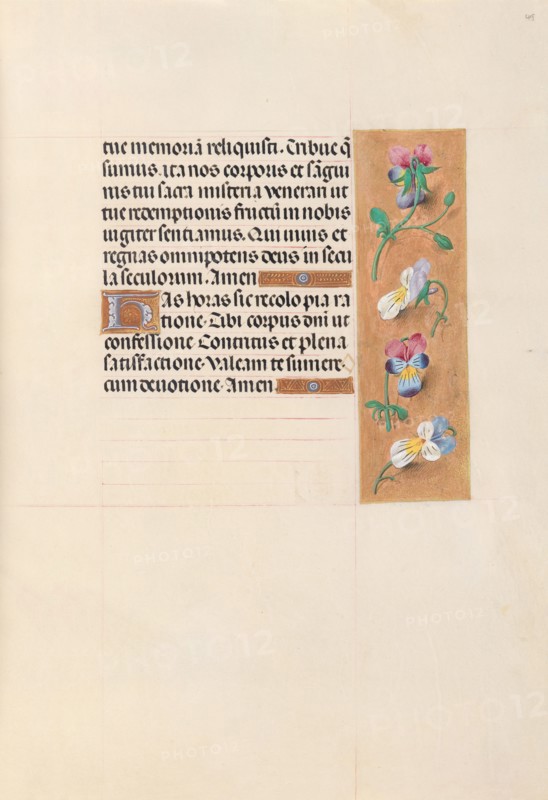 tue memoriā reliquisti. Tribue q̄
sumus. ita nos corporis et sāgui
nis tui sacra misteria venerari ut
tue redemptionis fructū in nobis
iugiter sentiamus. Qui vivis et
regnas omnipotens deus in secu
la seculorum. Amen
Has horas sic recolo pia ra
tione. Tibi corpus dn̄i ut
confessione. Contritus et plena
satisfactione. Valeam te sumere
cum devotione. Amen
PHOTO12